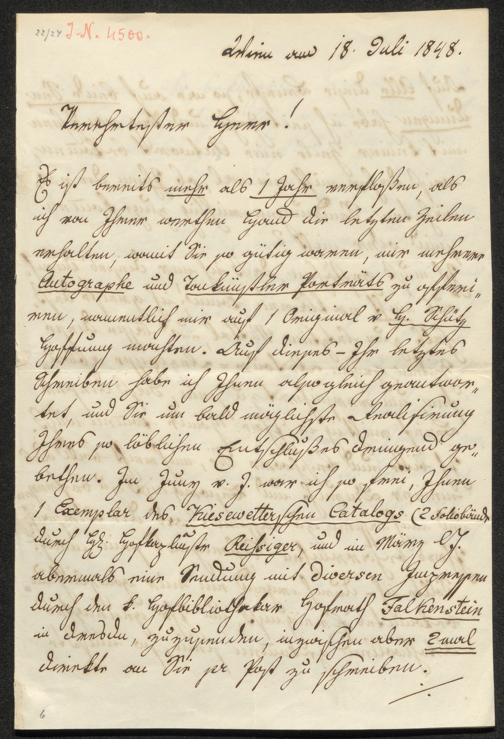 22/24 I.N. 4500.
Wien am 18. Juli 1848.
Verehrtester Herr!
Es ist bereits mehr als 1 Jahr verfloßen, als
ich von Ihrer werthen Hand die letzten Zeilen
erhalten, womit Sie so gütig waren, mir mehrere
Autographe und Tonkünstler Porträts zu offeri-
ren, namentlich mir auf 1 Original v H. Schütz
Hoffnung machten. Auf dieses – Ihr letztes
Schreiben habe ich Ihnen alsogleich geantwor-
tet, und Sie um bald möglichste Realisirung
Ihres so löblichen Entschlußes dringend ge-
bethen. Im Juny v. J. war ich so frei, Ihnen
1 Exemplar des Kiesewetterschen Catalogs (2 Foliobände
durch H: Hofkapellmstr Reissiger, und im März l. J.
abermals eine Sendung mit diversen
durch den k. Hofbibliothekar Hofrath Falkenstein
in Dresden, zuzusenden, inzwischen aber 2 mal
direkte an Sie pr Post zu schreiben.
6